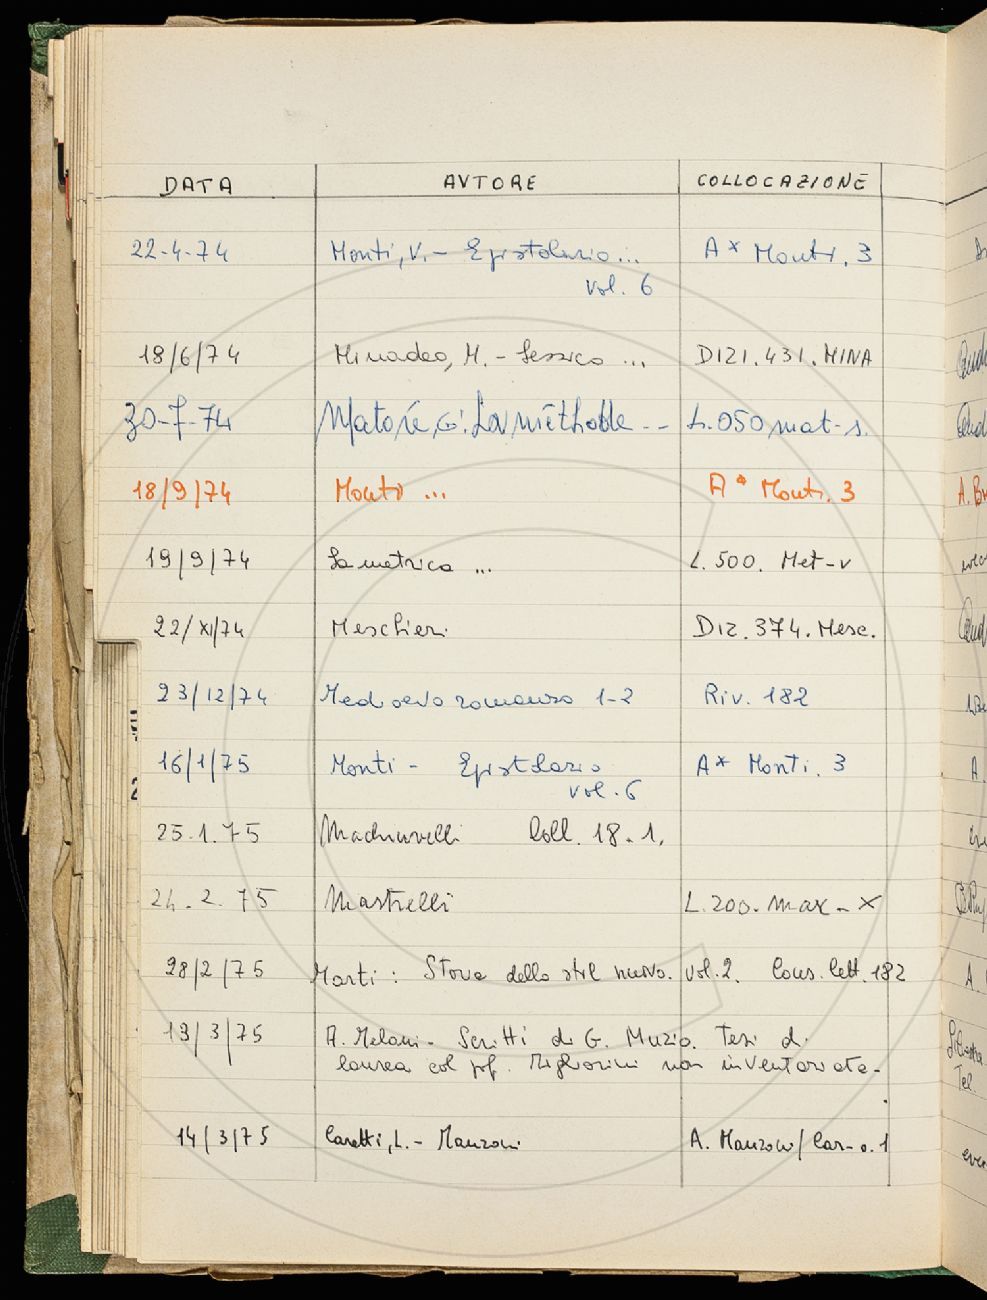 DATA AVTORE COLLOCAZIONE
22-4-74 Monti, V. - Epistolario ... A* Monti. 3
vol. 6
18/6/74 Minadeo, M. - Lessico ... DIZI. 431. MINA
30-7-74 Matoré, G: La méthode -- L. 050 mat-s.
18/9/74 Monti ... A* Monti. 3
19/9/74 La metrica ... L. 500. Met-v
22/XI/74 Meschieri DIZ. 374. Mesc.
23/12/74 Medioevo romanzo 1-2 Riv. 182
16/1/75 Monti - Epistolario A* Monti. 3
vol. 6
25.1.75 Machiavelli Coll. 18.1.
24.2.75 Mastrelli L.200. Max-X
28/2/75 Marti: Storia dello stil nuovo. vol. 2. Cons. lett. 182
13/3/75 A. Melani - Scritti di G. Muzio. Tesi di
laurea col prof. Migliorini non inventariata -
14/3/75 Caretti, L. - Manzoni A. Manzoni/Car-o. 1
A. Br
A.
A.
Tel.